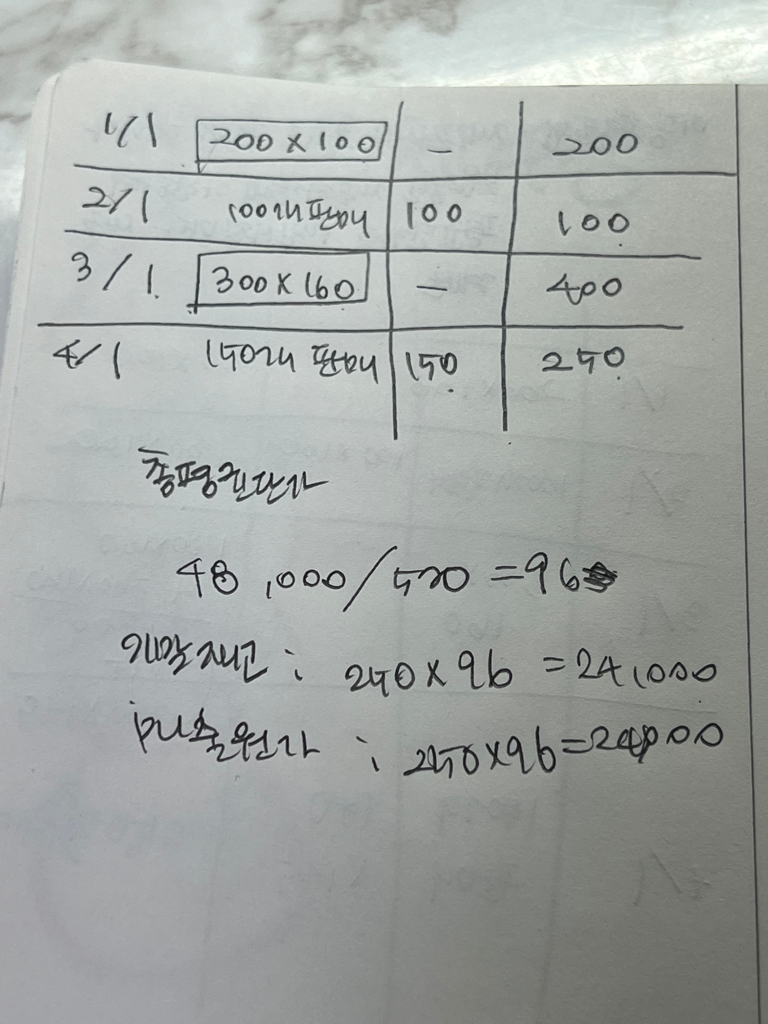 1/1 200 X 100 — 200
2/1 100개 판매 100 100
3/1 300 X 160 — 400
4/1 150개 판매 150 250
총평균단가
48,000/500 = 96
기말재고 : 250 X 96 = 24,000
매출원가 : 250 X 96 = 24,000